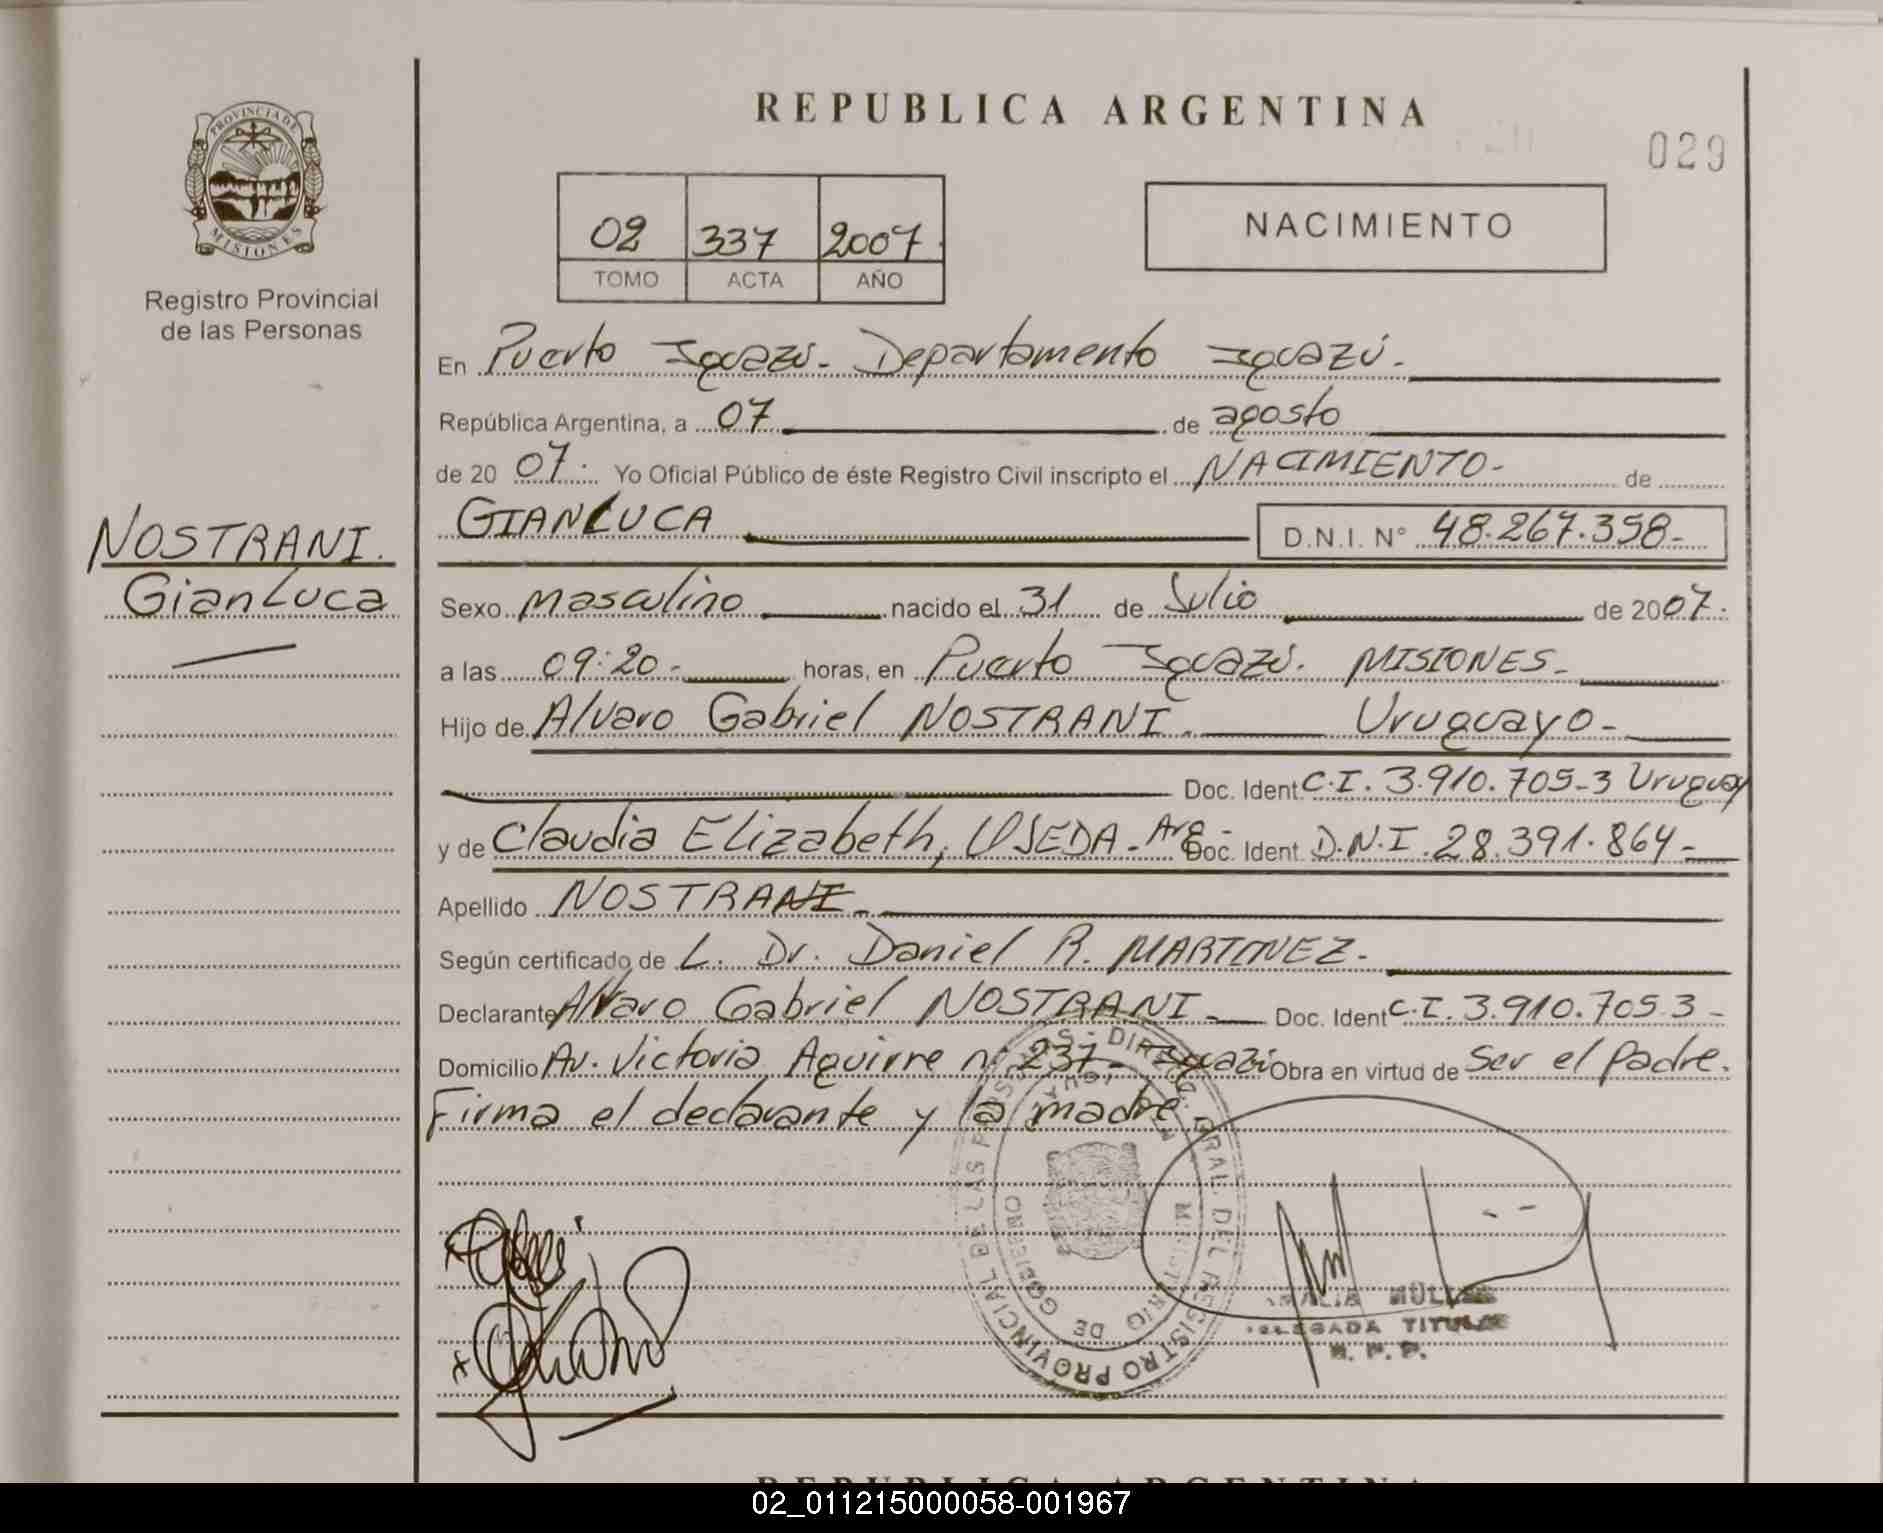 REPUBLICA ARGENTINA
029
PROVINCIA DE
MISIONES
Registro Provincial
de las Personas
02 337 2007
TOMO ACTA AÑO
NACIMIENTO
En Puerto Iguazú. Departamento Iguazú.
República Argentina, a 07 de agosto
de 20 07. Yo Oficial Público de éste Registro Civil inscripto el NACIMIENTO- de
GIANLUCA D.N.I. N° 48.267.358-
NOSTRANI.
GianLuca
Sexo masculino nacido el 31 de Julio de 2007.
a las 09:20- horas, en Puerto Iguazú. MISIONES-
Hijo de Alvaro Gabriel NOSTRANI. Uruguayo-
Doc. Ident. C.I. 3.910.705-3 Uruguay
y de Claudia Elizabeth, USEDA. Arg- Doc. Ident. D.N.I. 28.391.864-
Apellido NOSTRANI-
Según certificado de L. Dr. Daniel R. MARTINEZ-
Declarante Alvaro Gabriel NOSTRANI. Doc. Ident C.I. 3.910.705.3-
Domicilio Av. Victoria Aguirre nº 237- Iguazú Obra en virtud de Ser el padre.
Firma el declarante y la madre
DIRECC. GRAL. DEL REGISTRO PROVINCIAL DE LAS PERSONAS
MINISTERIO DE GOBIERNO
MÜLLER
DELEGADA TITULAR
R. P. P.
REPUBLICA ARGENTINA
02_011215000058-001967